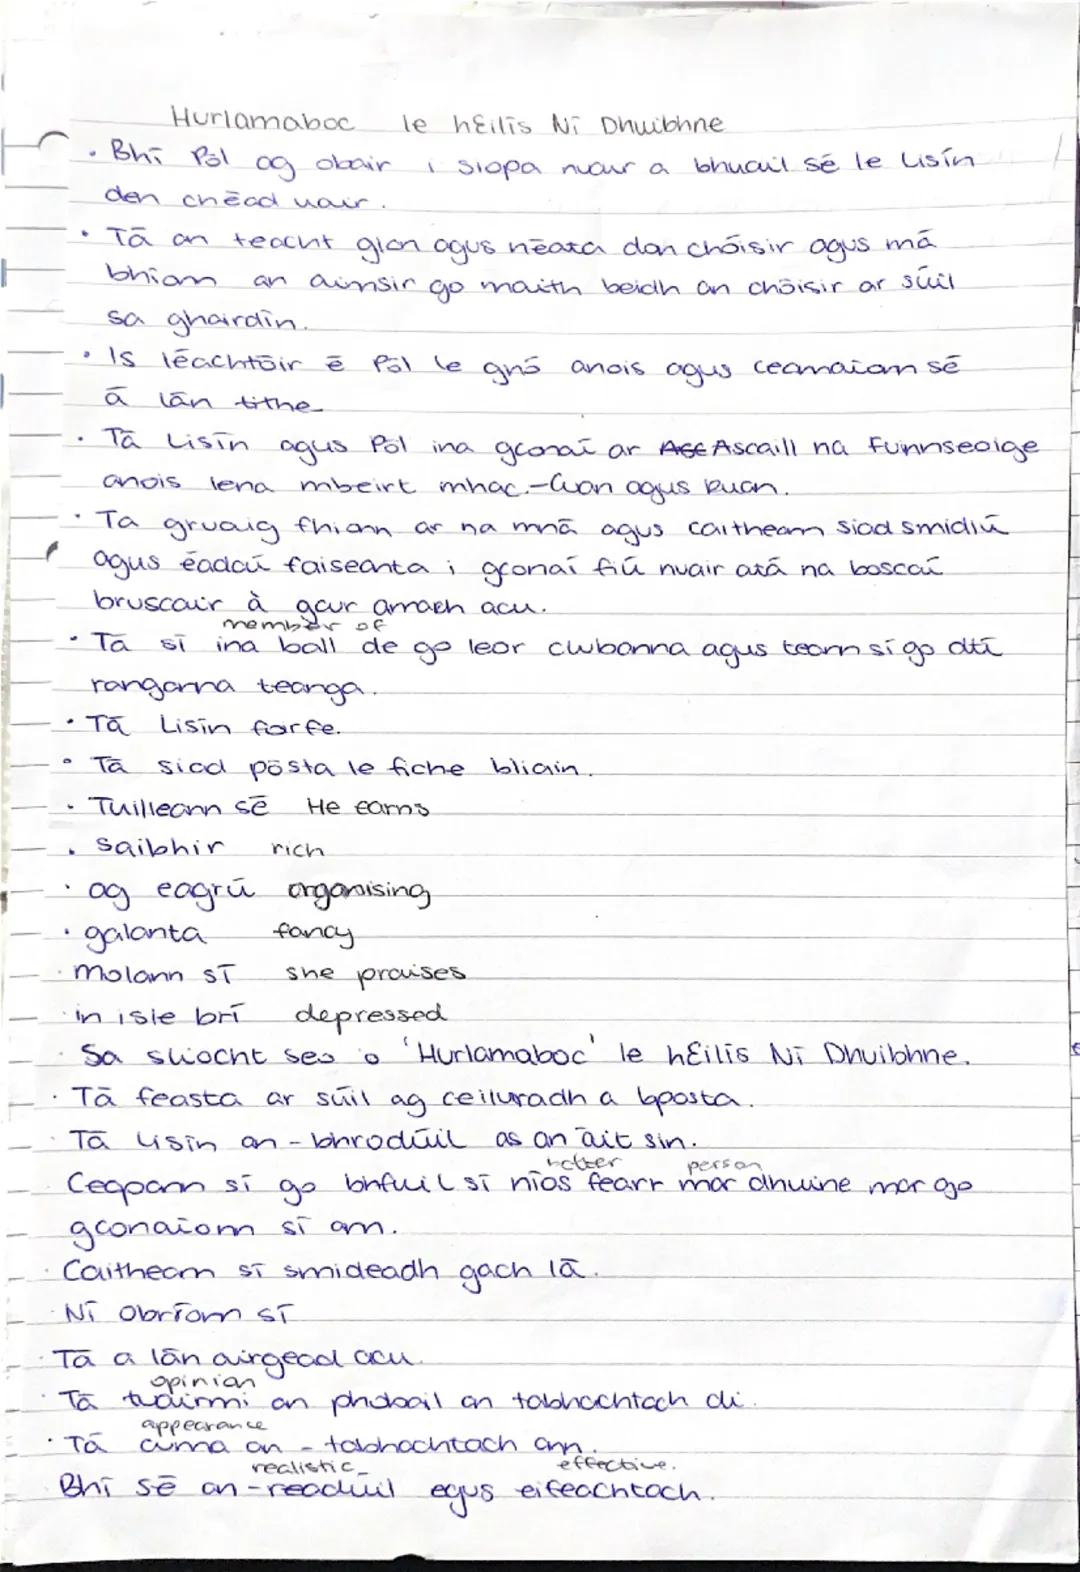 Hurlamaboc le hEilís Ní Dhuibhne
• Bhí Pól ag obair i siopa nuair a bhuail sé le Lisín
den chéad uair.
• Tá an teacht glan agus néata don chóisir agus má
bhíonn an aimsir go maith beidh an chóisir ar súil
sa ghairdín.
• Is léachtóir é Pól le gnó anois agus ceannaíonn sé
á lán tithe
• Tá Lisín agus Pól ina gconaí ar Ascaill na Fuinnseoige
anois lena mbeirt mhac.-Cuan agus Ruan.
• Ta gruaig fhionn ar na mná agus caitheann siad smidiú
agus éadaí faiseanta i gconaí fiú nuair atá na boscaí
bruscair à gcur amach acu.
member of
• Tá sí ina ball de go leor clubanna agus teann sí go dtí
ranganna teanga.
• Tá Lisín foirfe.
• Tá siad pósta le fiche bliain.
• Tuilleann sé He earns
• saibhir rich
• ag eagrú organising
• galanta fancy
• Molann sí she praises
• in ísle brí depressed
• Sa sliocht seo o 'Hurlamaboc' le hEilís Ní Dhuibhne.
• Tá feasta ar súil ag ceiluradh a bposta.
• Tá Lisín an-bhrodúil as an áit sin.
better person
Ceapann sí go bhfuil sí níos fearr mar dhuine mar go
gconaíonn sí ann.
• Caitheann sí smideadh gach lá.
• Ní Obríonn sí
• Tá a lán airgead acu.
opinion
• Tá tuairmi an phobail an tabhachtach di.
appearance
• Tá cuma an-tabhachtach ann.
realistic effective.
Bhí sé an-readúil egus eifeachtach.